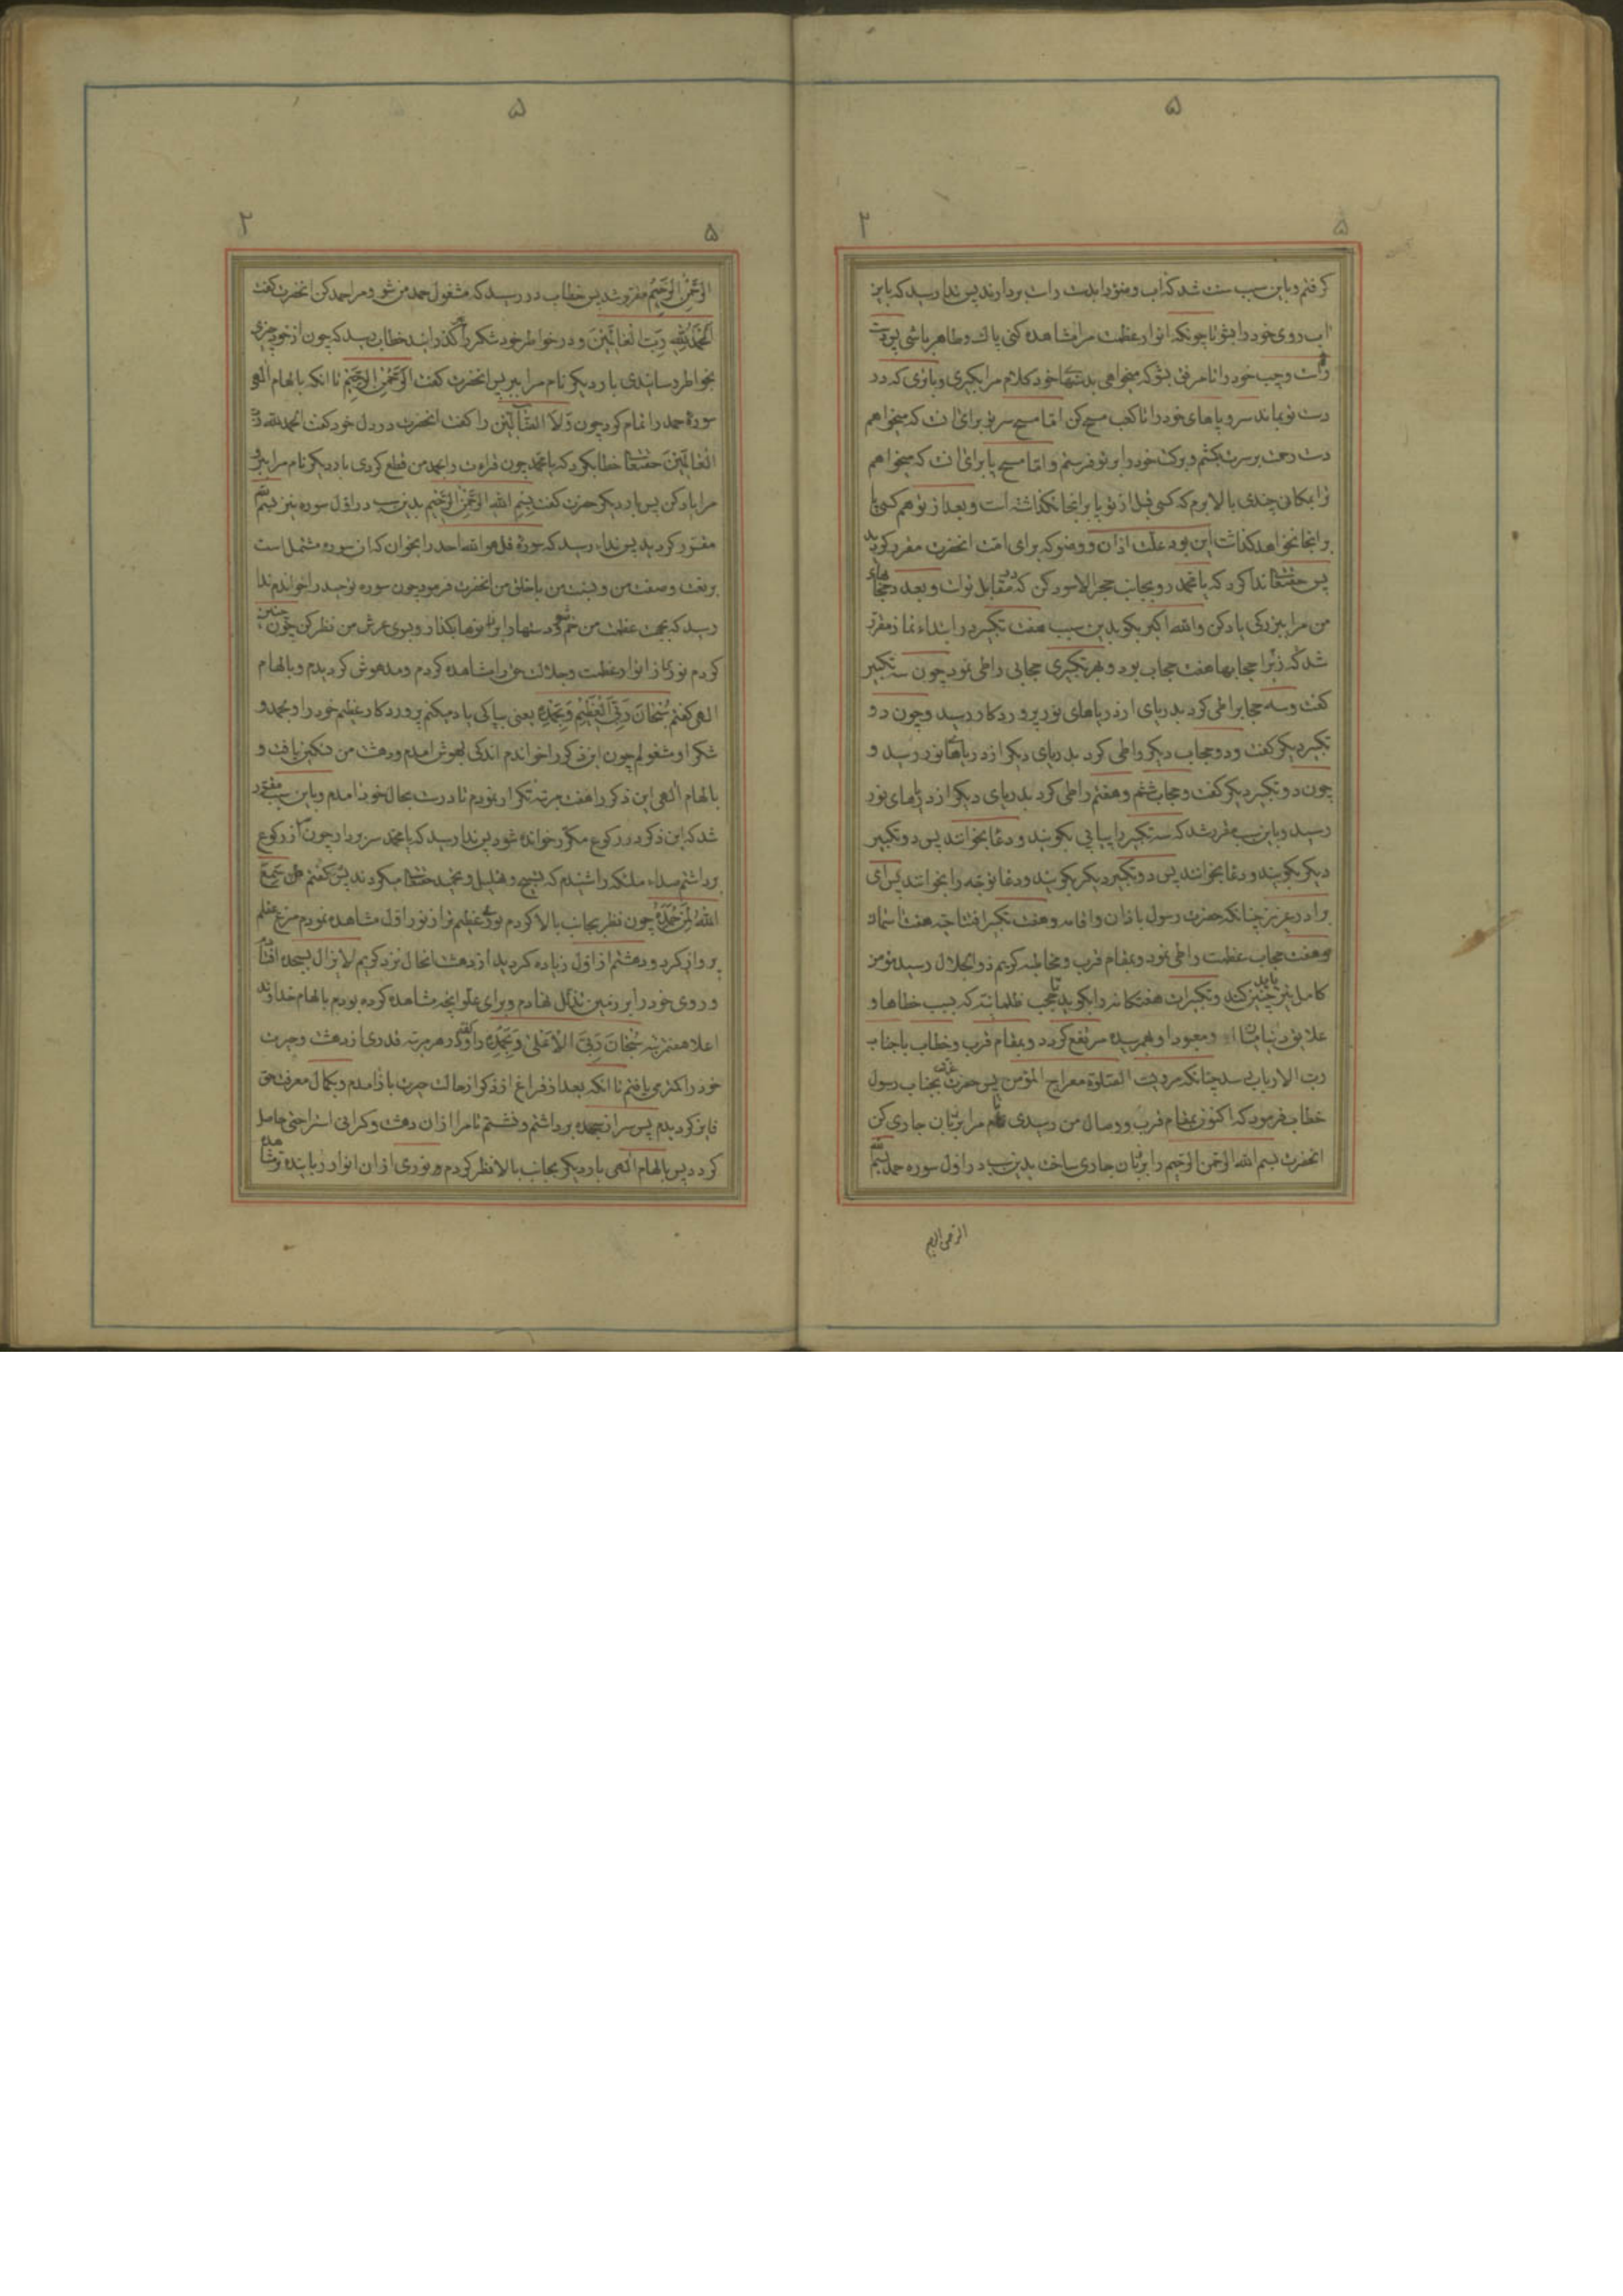 ۵
۵
۲
کرفتم و باین سبب سنت شد که اب وضو را بدست راست بردارند پس ندا رسید که باین
اب روی خود را بشو تا چونکه انوار عظمت مرا مشاهده کنی پاک و طاهر باشی پس دست
راست و چپ خود را تا مرفق بشو که میخواهی بدستها خود کلام مرا بکیری و باتری که در
دست تو بماند سر و پاهای خود را تا کعب مسح کن اما مسح سر تو برای ان است که میخواهم
دست رحمت بر سرت بکشم و برکت خود را بر تو فرستم و اما مسح پا برای ان است که میخواهم
ترا بمکانی چندی بالا برم که کسی قبل از تو پا بر انجا نکذاشته است و بعد از تو هم کسی پا
بر انجا نخواهد کذاشت این بود علت اذان و وضو که برای امت انحضرت مقرر کردید
پس حقتعالی ندا کرد که یا محمد رو بجانب حجر الاسود کن که در مقابل تو است و بعدد حجابهای
من مرا ببزرکی یاد کن و الله اکبر بکو بدین سبب هفت تکبیر در ابتداء نماز مقرر
شد که زیرا حجابها هفت حجاب بود و بهر تکبیری حجابی را طی نمود چون سه تکبیر
کفت و سه حجاب را طی کرد بدریای از دریاهای نور پروردکار رسید و چون دو
تکبیر دیکر کفت و دو حجاب دیکر را طی کرد بدریای دیکر از دریاهای نور رسید و
چون دو تکبیر دیکر کفت و حجاب ششم و هفتم را طی کرد بدریای دیکر از دریاهای نور
رسید و باین سبب مقرر شد که سه تکبیر را پیاپی بکویند و دعا بخوانند پس دو تکبیر
دیکر بکویند و دعا بخوانند پس دو تکبیر دیکر بکویند و دعا توجه را بخوانند پس ای
برادر عزیز چنانکه حضرت رسول باذان و اقامه و هفت تکبیر افتتاحیه هفت اسمان
و هفت حجاب عظمت را طی نمود و بمقام قرب و مخاطبه کریم ذو الجلال رسید مؤمن
کامل نیز باید چنین کند و تکبیرات هفتکانه را بکوید تا حجب ظلمانیه که بسبب خطاها و
علایق دنیا میان او و معبود او بهم رسیده مرتفع کردد و بمقام قرب و خطاب با جناب
رب الارباب برسد چنانکه مرویست الصلوة معراج المؤمن پس حضرت عزت بجناب رسول
خطاب فرمود که اکنون بمقام قرب و وصال من رسیدی نام مرا بر زبان جاری کن
انحضرت بسم الله الرحمن الرحیم را بر زبان جاری ساخت بدین سبب در اول سوره حمد بسم الله
الرحمن الرحیم
۵
۵
۲
الرحمن الرحیم مقرر شد پس خطاب در رسید که مشغول حمد من شو و مرا حمد کن انحضرت کفت
الحمد لله رب العالمین و در خواطر خود شکر را کذرانید خطاب رسید که چون از خود چیزی
بخواطر رسانیدی بار دیکر نام مرا ببر پس انحضرت کفت الرحمن الرحیم تا انکه بالهام الهی
سورهٔ حمد را تمام کرد چون و لا الضالین را کفت انحضرت در دل خود کفت الحمد لله رب
العالمین حقتعالی خطاب کرد که یا محمد چون قرائت را بحمد من قطع کردی بار دیکر نام مرا ببر و
مرا یاد کن پس بار دیکر حضرت کفت بسم الله الرحمن الرحیم بدین سبب در اول سوره نیز بسم الله
مقرر کردید پس نداء رسید که سورهٔ قل هو الله احد را بخوان که ان سوره مشتمل است
بر نعت و صفت من و نسبت من با خلق من انحضرت فرمود چون سوره توحید را خواندم ندا
رسید که بجهت عظمت من خم شو و دستها را بر زانوها بکذار و بسوی عرش من نظر کن چون چنین
کردم نوری از انوار عظمت و جلالت حق را مشاهده کردم و مدهوش کردیدم و بالهام
الهی کفتم سبحان ربی العظیم و بحمده یعنی بپاکی یاد میکنم پروردکار عظیم خود را و بحمد و
شکر او مشغولم چون این ذکر را خواندم اندکی بهوش امدم و دهشت من تسکین یافت و
بالهام الهی این ذکر را هفت مرتبه تکرار نمودم تا درست بحال خود امدم و باین سبب مقرر
شد که این ذکر در رکوع مکرر خوانده شود پس ندا رسید که یا محمد سر بردار چون سر از رکوع
برداشتم صداء ملئکه را شنیدم که تسبیح و تهلیل و تمجید حقتعالی میکردند پس کفتم سمع
الله لمن حمده چون نظر بجانب بالا کردم نوری عظیم تر از نور اول مشاهده نمودم مرغ عقلم
پرواز کرد و دهشتم از اول زیاده کردید از دهشت انحال نزد کریم لایزال بسجده افتادم
و روی خود را بر زمین تذلل نهادم و برای علو انچه مشاهده کرده بودم بالهام خداوند
اعلا هفت مرتبه سبحان ربی الاعلی و بحمده را کفتم و در هر مرتبه قدری از دهشت و حیرت
خود را کمتر می یافتم تا انکه بعد از فراغ از ذکر از حالت حیرت باز امدم و بکمال معرفت حق
فایز کردیدم پس سر از سجده برداشتم و نشستم تا مرا از ان دهشت و کرانی استراحتی حاصل
کردد پس بالهام الهی بار دیکر بجانب بالا نظر کردم و نوری از ان انوار زیاده تر مشاهده